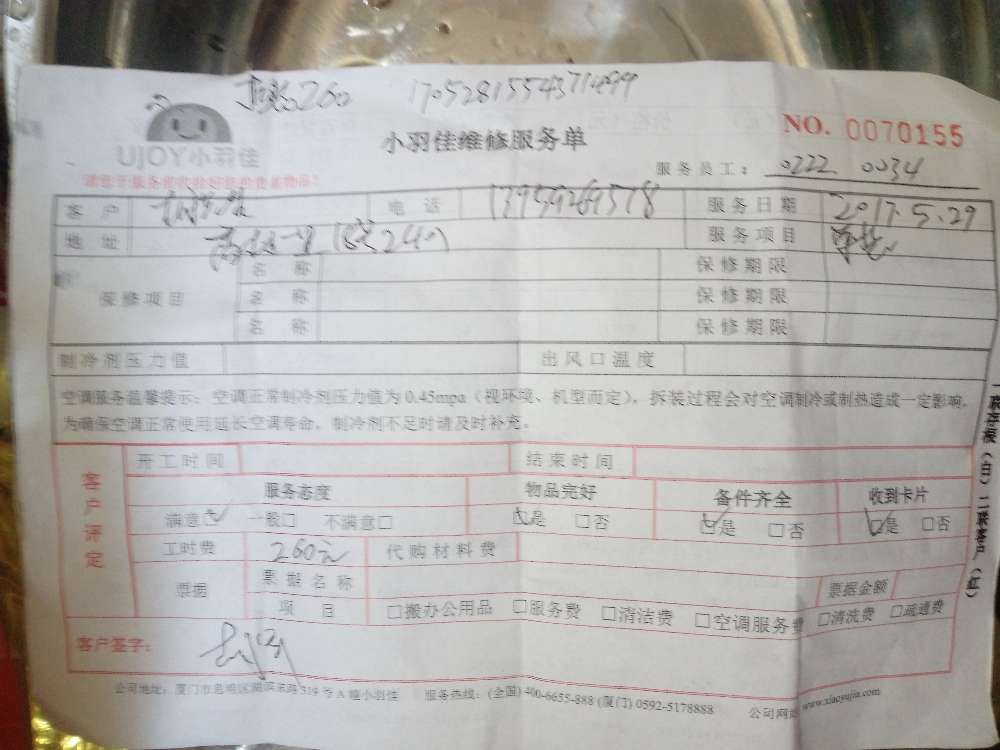 260 17052815543711499
UJOY小羽佳
小羽佳维修服务单
NO. 0070155
服务员工: 0222 0034
客户 电话 服务日期 2017.5.29
地址 服务项目
保修项目 名称 保修期限
名称 保修期限
名称 保修期限
制冷剂压力值 出风口温度
空调服务温馨提示：空调正常制冷剂压力值为0.45mpa（视环境、机型而定），拆装过程会对空调制冷或制热造成一定影响，
为确保空调正常使用延长空调寿命，制冷剂不足时请及时补充。
客户评定
开工时间 结束时间
服务态度 物品完好 备件齐全 收到卡片
满意☑ 一般□ 不满意□ ☑是 □否 ☑是 □否 ☑是 □否
工时费 260元 代购材料费
票据 票据名称 票据金额
项目 □搬办公用品 □服务费 □清洁费 □空调服务费 □清洗费 □疏通费
客户签字：
公司地址：厦门市思明区湖滨东路319号A幢小羽佳 服务热线：(全国) 400-6655-888 (厦门) 0592-5178888 公司网站 www.xiaoyujia.com
一联存根（白）二联客户（红）